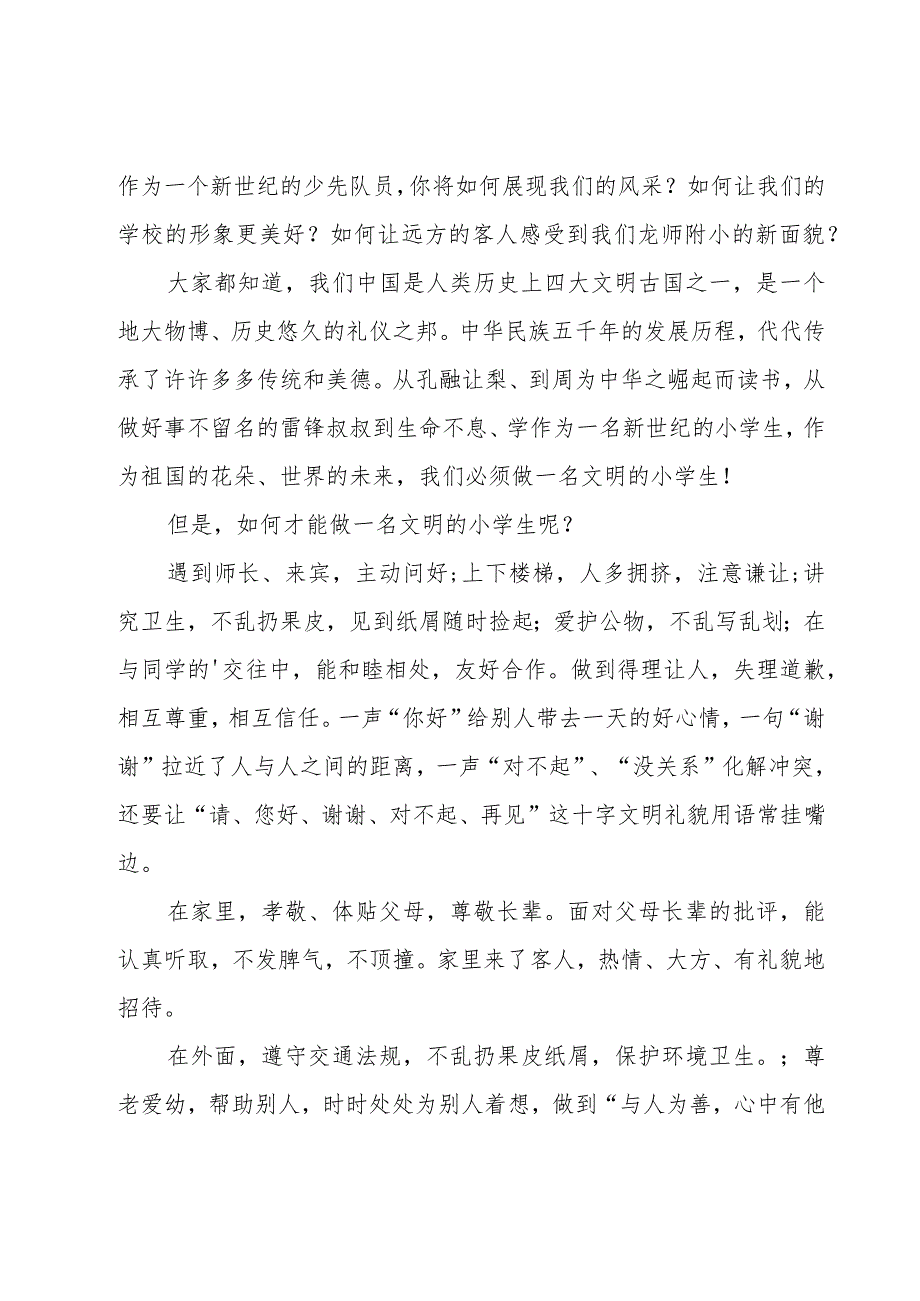 作为一个新世纪的少先队员，你将如何展现我们的风采？如何让我们的
学校的形象更美好？如何让远方的客人感受到我们龙师附小的新面貌？
大家都知道，我们中国是人类历史上四大文明古国之一，是一个
地大物博、历史悠久的礼仪之邦。中华民族五千年的发展历程，代代传
承了许许多多传统和美德。从孔融让梨、到周为中华之崛起而读书，从
做好事不留名的雷锋叔叔到生命不息、学作为一名新世纪的小学生，作
为祖国的花朵、世界的未来，我们必须做一名文明的小学生！
但是，如何才能做一名文明的小学生呢？
遇到师长、来宾，主动问好;上下楼梯，人多拥挤，注意谦让;讲
究卫生，不乱扔果皮，见到纸屑随时捡起；爱护公物，不乱写乱划；在
与同学的'交往中，能和睦相处，友好合作。做到得理让人，失理道歉，
相互尊重，相互信任。一声“你好”给别人带去一天的好心情，一句“谢
谢”拉近了人与人之间的距离，一声“对不起”、“没关系”化解冲突，
还要让“请、您好、谢谢、对不起、再见”这十字文明礼貌用语常挂嘴
边。
在家里，孝敬、体贴父母，尊敬长辈。面对父母长辈的批评，能
认真听取，不发脾气，不顶撞。家里来了客人，热情、大方、有礼貌地
招待。
在外面，遵守交通法规，不乱扔果皮纸屑，保护环境卫生。；尊
老爱幼，帮助别人，时时处处为别人着想，做到“与人为善，心中有他